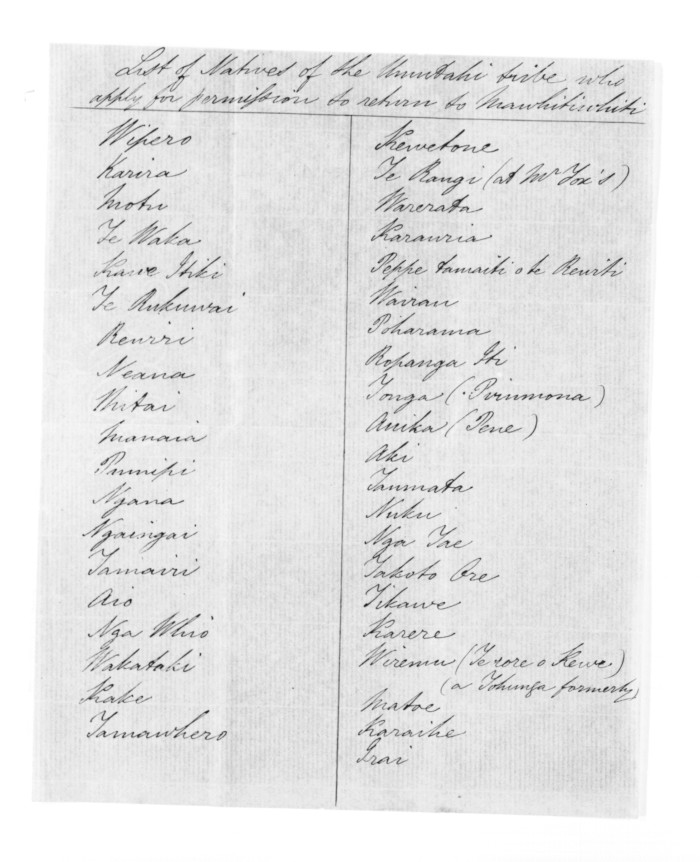 List of Natives of the Umutahi tribe who
apply for permission to return to Mawhitiwhiti
Wipero
Karira
Motu
Te Waka
Kawe Itiki
Te Rukuwai
Rewiri
Neana
Mitai
Manaia
Punipi
Ngana
Ngaingai
Tamairi
Aio
Nga Whio
Wakataki
Kake
Tamawhero
Kewetone
Te Rangi (at Mr Fox's)
Warerata
Karauria
Peppe tamaiti o te Rewiti
Wairau
Poharama
Ropanga Iti
Tonga (Pirimona)
Anika (Pene)
Aki
Taumata
Nuku
Nga Tae
Takoto Ore
Tikawe
Karere
Wiremu (Te rore o Kewe)
(a Tohunga formerly)
Matoe
Karaihe
Irai